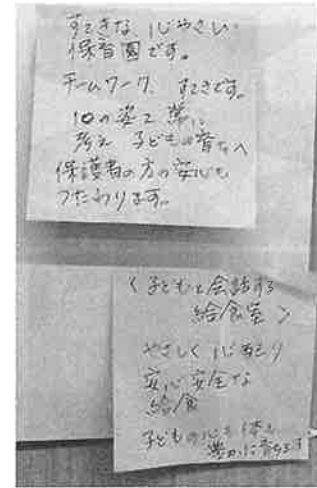 すてきな 心やさしい
保育園です。
チームワーク すてきです。
10の姿で 常に
考え 子どもの育ちへ
保護者の方の安心も
つたわります。
〈子どもと会話する
給食室〉
やさしく 心あり
安心安全な
給食
子どもの心も体も
豊かに育ちます